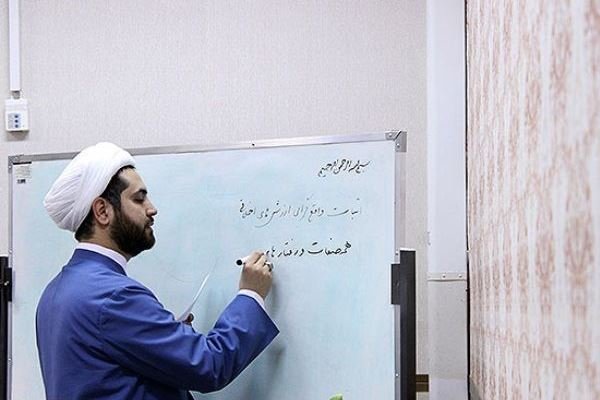 بسم الله الرحمن الرحیم
اثبات واقع گرای ارزش های اخلاقی
همه صفات و رفتارهای